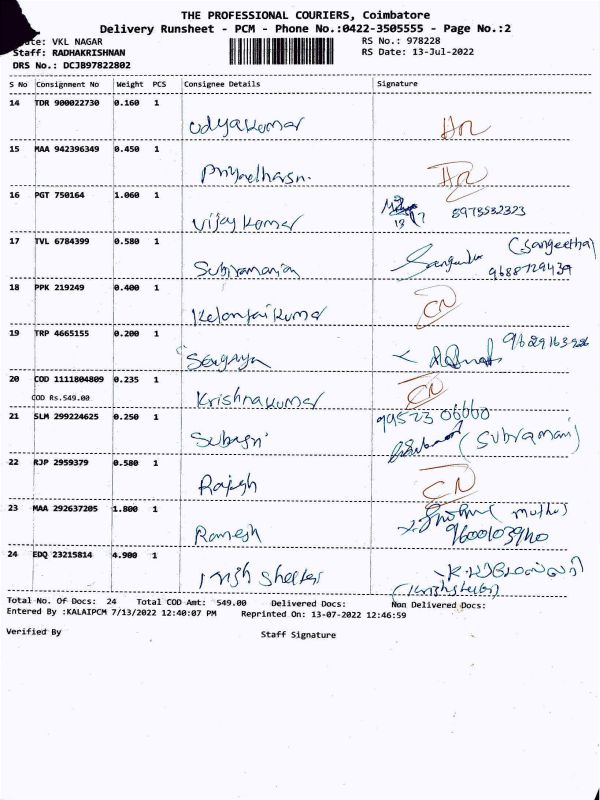 THE PROFESSIONAL COURIERS, Coimbatore
Delivery Runsheet - PCM - Phone No.:0422-3505555 - Page No.:2
VKL NAGAR RS No.: 978228
Staff: RADHAKRISHNAN RS Date: 13-Jul-2022
DRS No.: DCJB97822802
S No Consignment No Weight PCS Consignee Details Signature
14 TDR 900022730 0.160 1
Udyakumar HR
15 MAA 942396349 0.450 1
HR
16 PGT 750164 1.060 1
Vijay Kumar 8973532323
17 TVL 6784399 0.580 1 (Sangeetha)
Subiramanian 9688729439
18 PPK 219249 0.400 1
CN
19 TRP 4665155 0.200 1
20 COD 1111804809 0.235 1
COD Rs.549.00 Krishnakumar CN
21 SLM 299224625 0.250 1 99523 06660
(Subramani)
22 RJP 2959379 0.580 1
Rajesh CN
23 MAA 292637205 1.800 1
Ramesh 9600103940
24 EDQ 23215814 4.900 1
Total No. Of Docs: 24 Total COD Amt: 549.00 Delivered Docs: Non Delivered Docs:
Entered By :KALAIPCM 7/13/2022 12:40:07 PM Reprinted On: 13-07-2022 12:46:59
Verified By Staff Signature